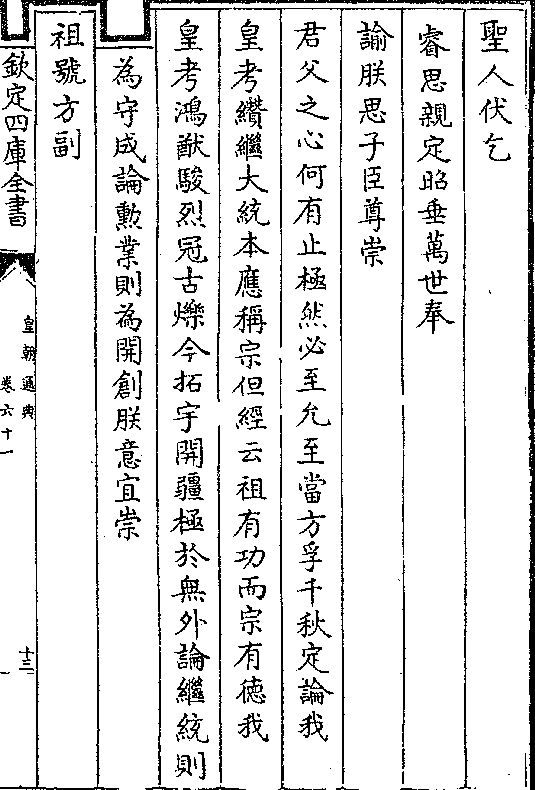 聖人伏乞
睿思親定昭垂萬世奉
諭朕思子臣尊崇
君父之心何有止極然必至允至當方孚千秋定論我
皇考纘繼大統本應稱宗但經云祖有功而宗有德我
皇考鴻猷駿烈冠古爍今拓宇開疆極於無外論繼統則
為守成論勲業則為開創朕意宜崇
祖號方副
欽定四庫全書
皇朝通典
卷六十一
十三